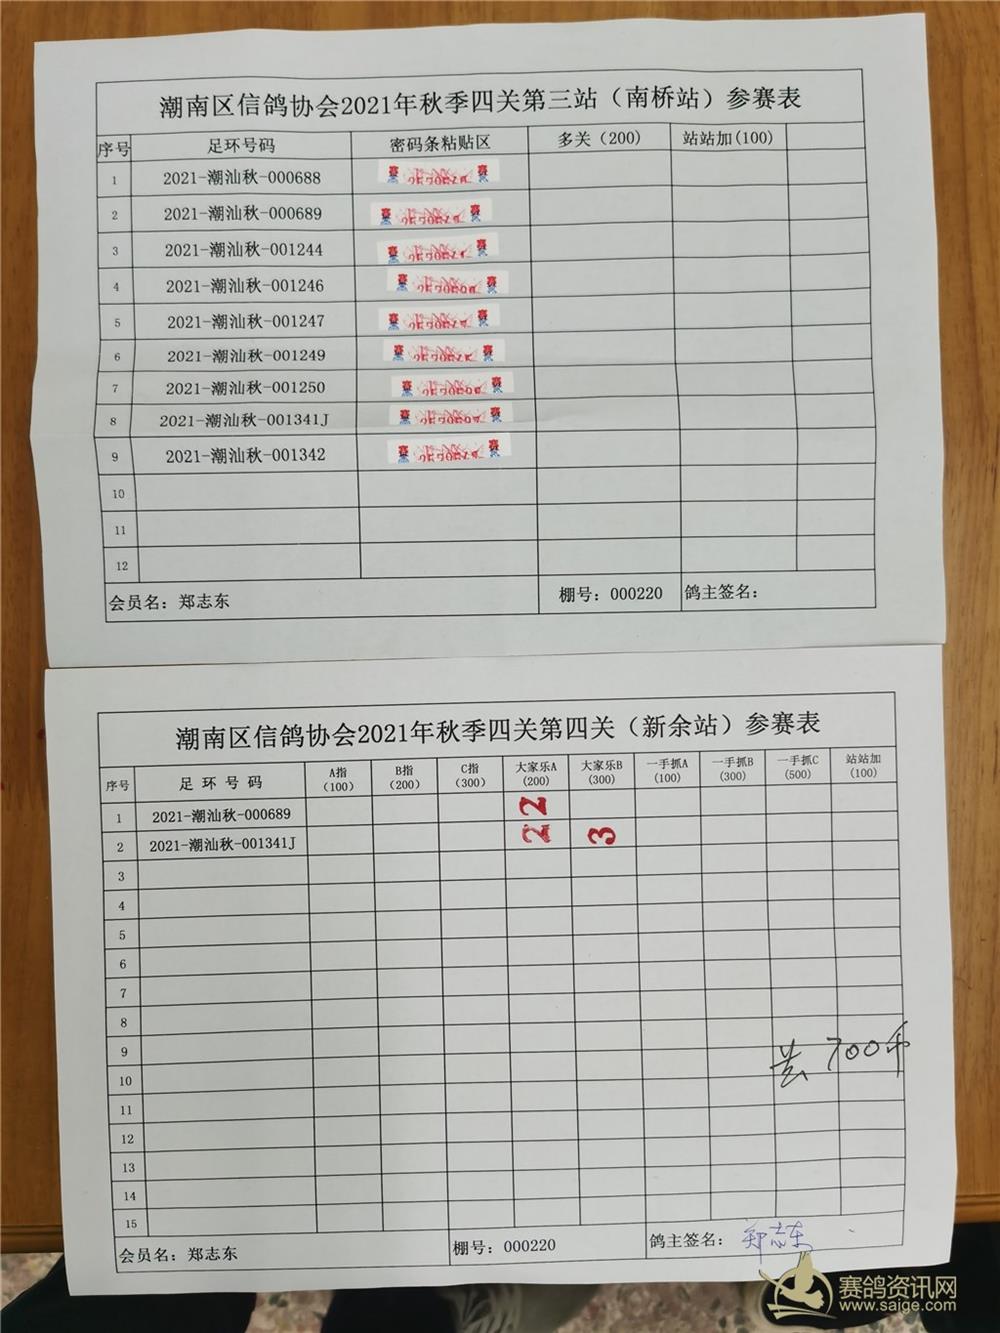 潮南区信鸽协会2021年秋季四关第三站（南桥站）参赛表
序号 足环号码 密码条粘贴区 多关（200） 站站加(100)
1 2021-潮汕秋-000688 赛 赛
2 2021-潮汕秋-000689 赛 赛
3 2021-潮汕秋-001244 赛 赛
4 2021-潮汕秋-001246 赛 赛
5 2021-潮汕秋-001247 赛 赛
6 2021-潮汕秋-001249 赛 赛
7 2021-潮汕秋-001250 赛 赛
8 2021-潮汕秋-001341J 赛 赛
9 2021-潮汕秋-001342 赛 赛
10
11
12
会员名：郑志东 棚号：000220 鸽主签名：
潮南区信鸽协会2021年秋季四关第四关（新余站）参赛表
序号 足环号码 A指（100） B指（200） C指（300） 大家乐A(200) 大家乐B(300) 一手抓A(100) 一手抓B(300) 一手抓C(500) 站站加(100)
1 2021-潮汕秋-000689 2
2 2021-潮汕秋-001341J 2 3
3
4
5
6
7
8
9
10
11
12
13
14
15
共700币
会员名：郑志东 棚号：000220 鸽主签名：郑志东
赛鸽资讯网
www.saige.com